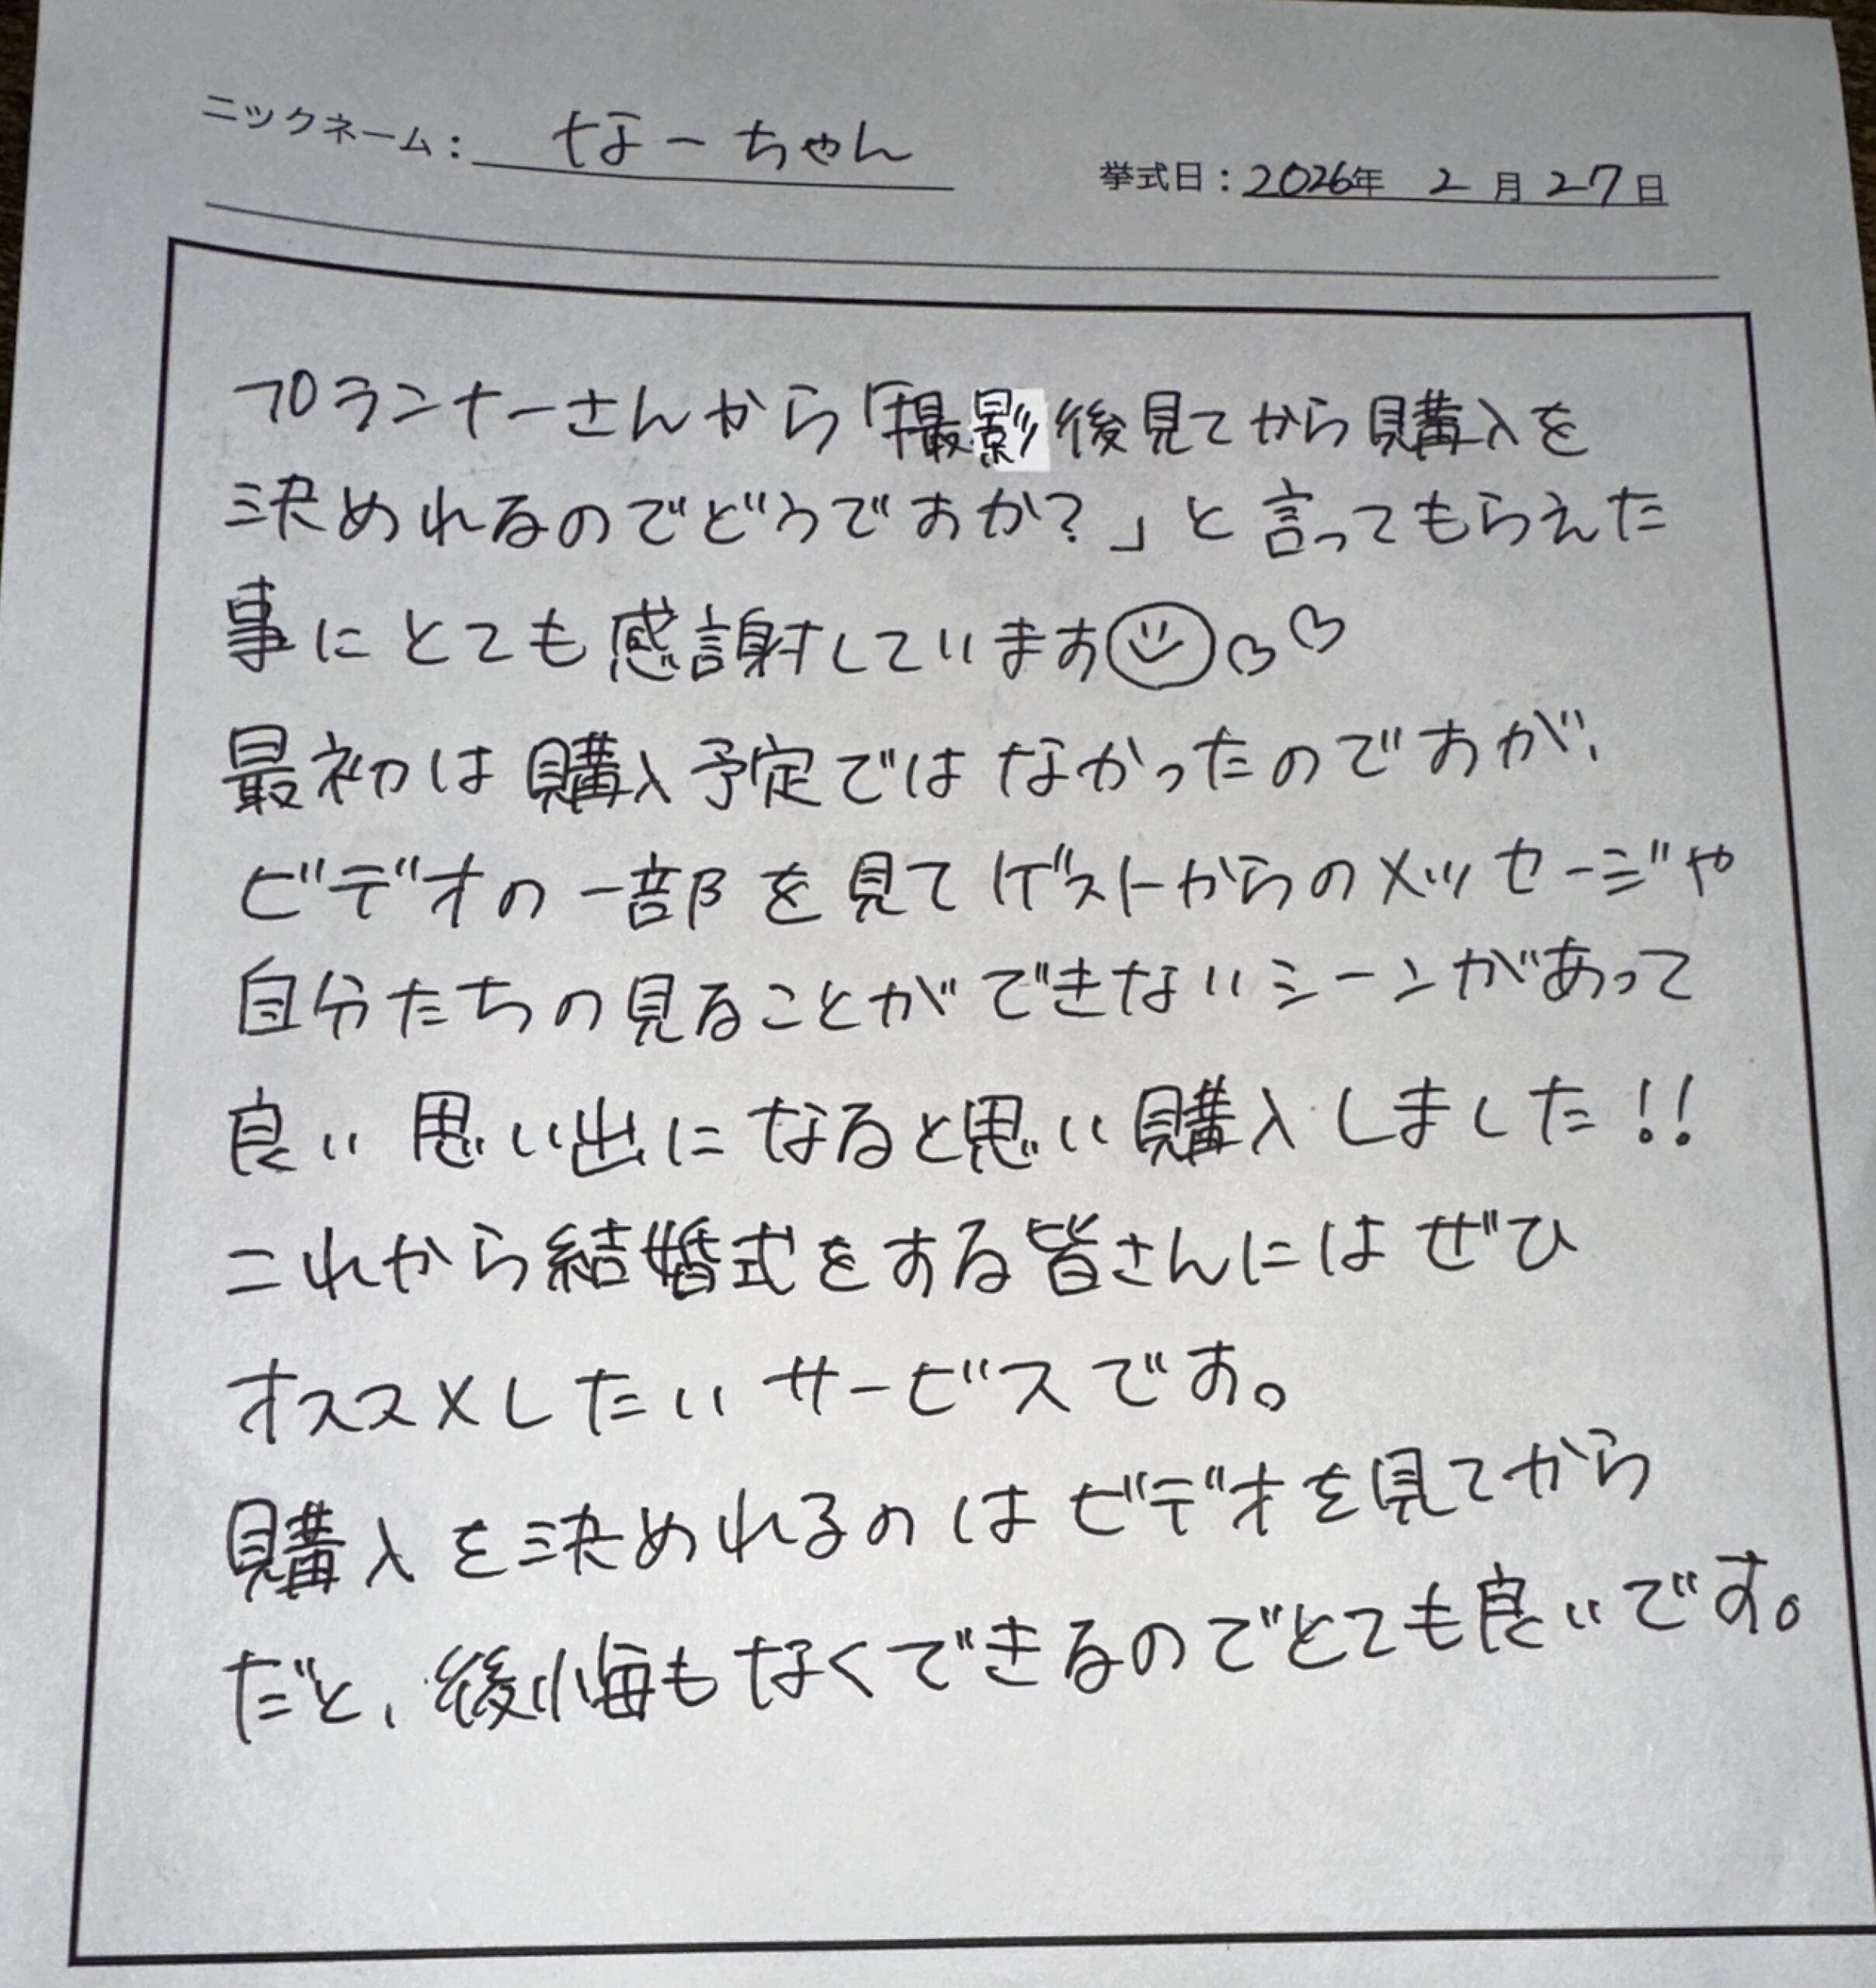 ニックネーム： なーちゃん
挙式日：2026年 2月27日
プランナーさんから「撮影後見てから購入を
決めれるのでどうですか？」と言ってもらえた
事にとても感謝しています☺♡♡
最初は購入予定ではなかったのですが、
ビデオの一部を見てゲストからのメッセージや
自分たちの見ることができないシーンがあって
良い思い出になると思い購入しました!!
これから結婚式をする皆さんにはぜひ
オススメしたいサービスです。
購入を決めれるのはビデオを見てから
だと、後悔もなくできるのでとても良いです。